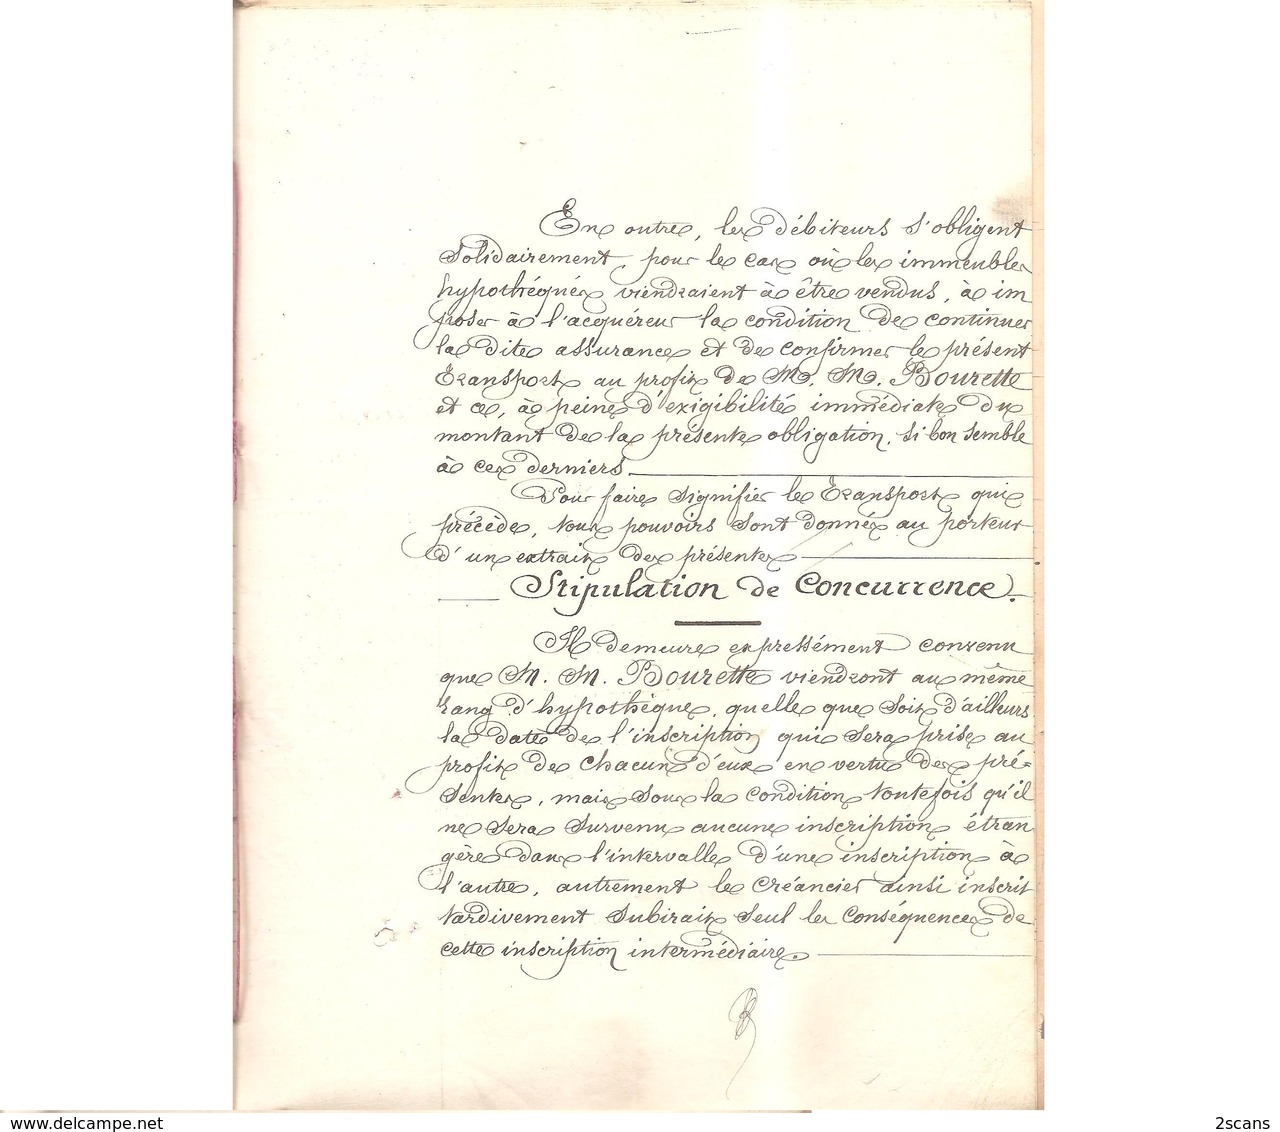 En outre, les débiteurs s'obligent
solidairement, pour le cas où les immeubles
hypothéqués viendraient à être vendus, à im
poser à l'acquéreur la condition de continuer
la dite assurance et de confirmer le présent
transport au profit de M. M. Bourette
et ce, à peine d'exigibilité immédiate du
montant de la présente obligation, si bon semble
à ces derniers.
Pour faire signifier le transport qui
précède, tous pouvoirs sont donnés au porteur
d'un extrait des présentes
Stipulation de Concurrence.
Il demeure expressément convenu
que M. M. Bourette viendront au même
rang d'hypothèque, quelle que soit d'ailleurs
la date de l'inscription qui sera prise au
profit de chacun d'eux en vertu des pré=
sentes, mais sous la condition toutefois qu'il
ne sera survenu aucune inscription étran
gère dans l'intervalle d'une inscription à
l'autre, autrement le créancier ainsi inscrit
tardivement subirait seul les conséquences de
cette inscription intermédiaire.
www.delcampe.net
2scans